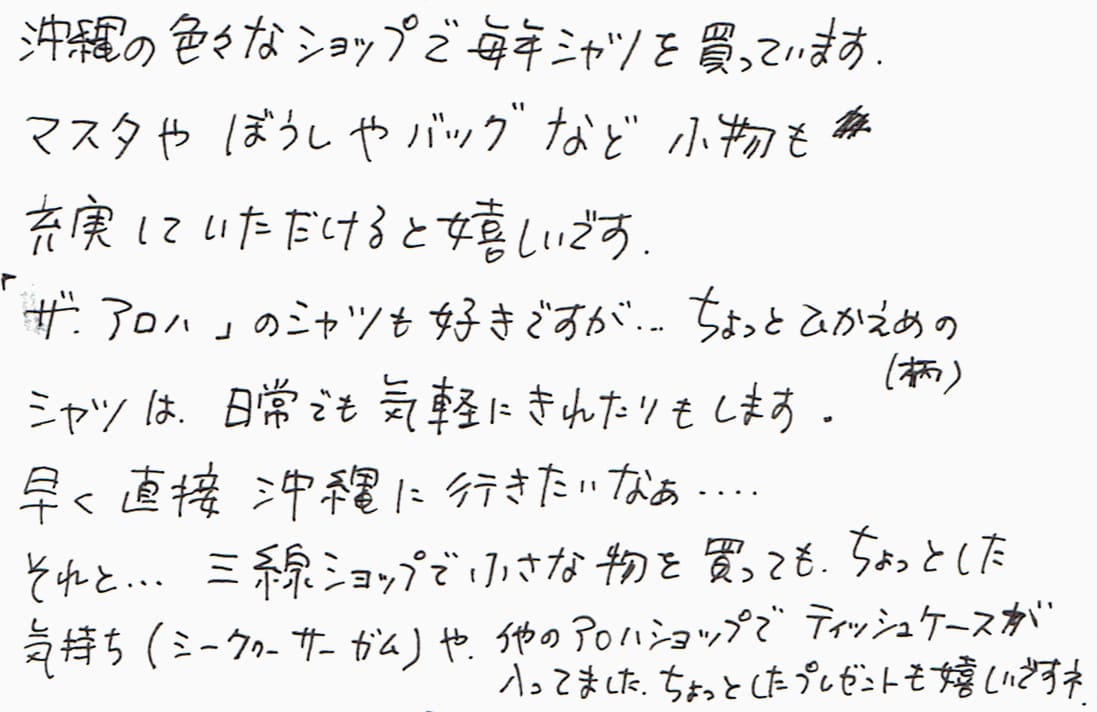 沖縄の色々なショップで毎年シャツを買っています.
マスタや ぼうしや バッグ など 小物も
充実していただけると嬉しいです.
「ザ・アロハ」のシャツも好きですが… ちょっとひかえめの
(柄)
シャツは、日常でも気軽にきれたりもします。
早く直接 沖縄に行きたいなぁ‥‥
それと… 三線ショップで小さな物を買っても、ちょっとした
気持ち(シークヮーサーガム)や、他のアロハショップで ティッシュケースが
入ってました、ちょっとしたプレゼントも嬉しいですネ.